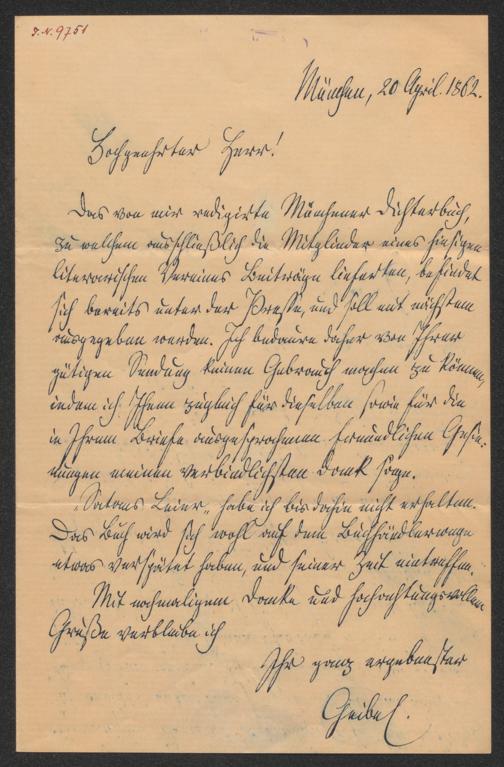 J.N. 9751
München, 20 April. 1862.
Hochgeehrter Herr!
Das von mir redigirte Münchener Dichterbuch,
zu welchem ausschließlich die Mitglieder eines hiesigen
literarischen Vereines Beiträge lieferten, befindet
sich bereits unter der Presse, und soll mit nächstem
ausgegeben werden. Ich bedaure daher von Ihrer
gütigen Sendung keinen Gebrauch machen zu können,
indem ich Ihnen zugleich für dieselben sowie für die
in Ihrem Briefe ausgesprochenen freundlichen Gesin-
nungen meinen verbindlichsten Dank sage.
„Satans Leier" habe ich bis dahin nicht erhalten.
Das Buch wird sich wohl auf dem Buchhändlerwege
etwas verspätet haben, und seiner Zeit eintreffen.
Mit nochmaligem Danke und hochachtungsvollem
Gruße verbleibe ich
Ihr ganz ergebenster
Geibel.